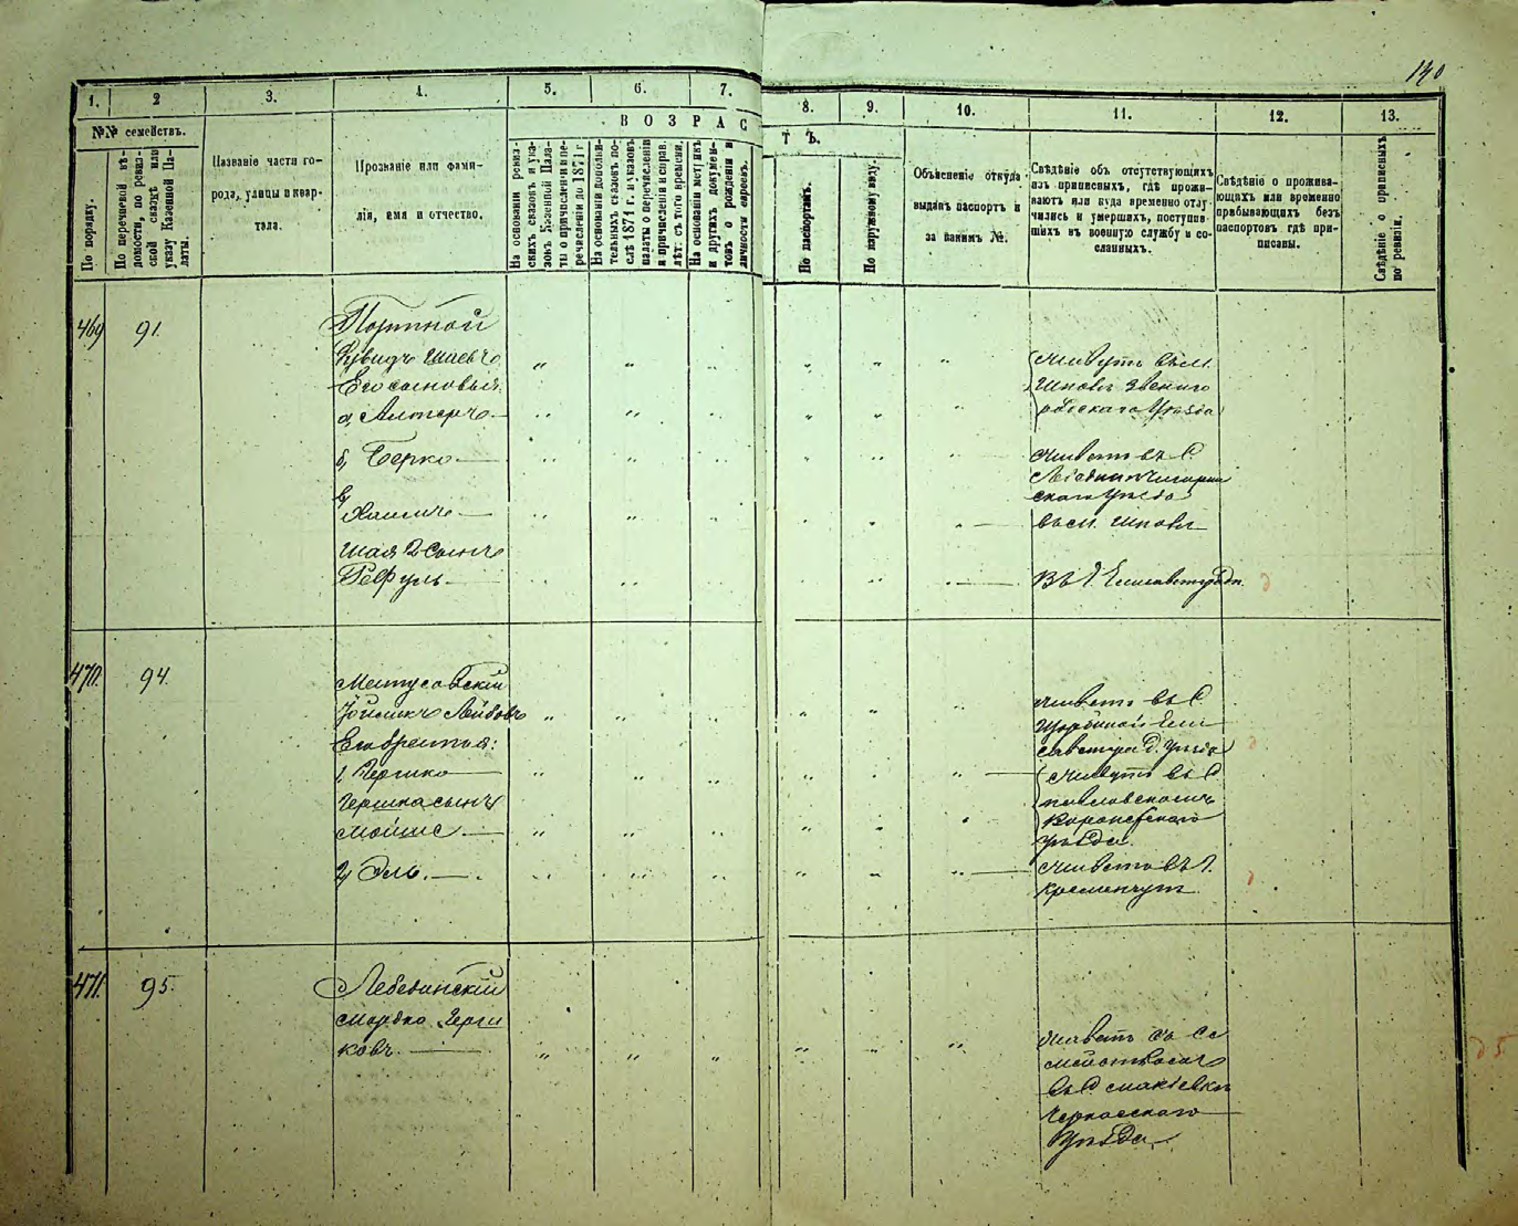 140
1. 2 3. 4. 5. 6. 7. 8. 9. 10. 11. 12. 13.
№№ семействъ.
По порядку.
По перечневой вѣ-
домости, по ревиз-
ской сказкѣ или
указу Казенной Па-
латы.
Названіе части го-
рода, улицы и квар-
тала.
Прозваніе или фами-
лія, имя и отчество.
ВОЗРАСТЪ.
На основаніи ревиз-
скихъ сказокъ и ука-
зовъ Казенной Пала-
ты о причисленіи и пе-
речисленіи до 1871 г.
На основаніи дополни-
тельныхъ сказокъ по-
слѣ 1871 г. и указовъ
палаты о перечисленіи
и причисленіи и справ.
лѣт: съ того времени.
На основаніи метрикъ
и другихъ докумен-
товъ о рожденіи и
личности евреевъ.
По паспортамъ.
По наружному виду.
Объясненіе откуда
выданъ паспортъ и
за какимъ №.
Свѣдѣніе объ отсутствующихъ
изъ приписныхъ, гдѣ прожи-
ваютъ или куда временно отлу-
чились и умершихъ, поступив-
шихъ въ военную службу и со-
сланныхъ.
Свѣдѣніе о прожива-
ющихъ или временно
прибывающихъ безъ
паспортовъ гдѣ при-
писаны.
Свѣдѣніе о приписныхъ
по ревизіи.
469 91.
Портной
Его сыновья:
а, Алтеръ
б, Берко
в,
Хаимъ
Шая 2 сынъ
Рефуль
Живутъ въ м.
Шполѣ Звениго
родскаго Уѣзда
Живетъ въ С.
скаго Уѣзда
въ м. Шполѣ
Въ г. Елисаветградѣ.
470. 94.
Матусовскій
Лейбовъ
Его братья:
1, Гершко
Гершка сынъ
Мойше
2, Эль.
Живетъ въ С.
Ели
саветград. Уѣзда
Живутъ въ С.
Павловскомъ
Уѣзда.
Живетъ въ г.
Кременчугѣ
471. 95.
Лебединскій
Мордко Герш
ковъ.
Живетъ съ Се
мействомъ
въ С. Макіевкѣ
Черкасскаго
Уѣзда